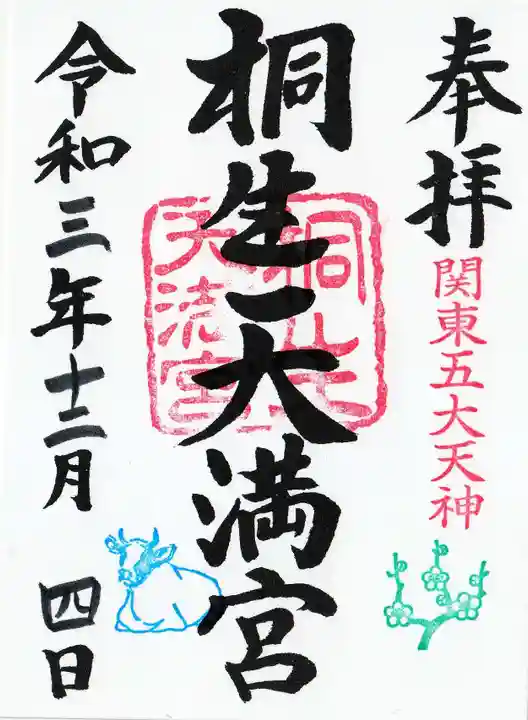 奉拝
関東五大天神
桐生天満宮
桐生天満宮
令和三年十二月 四日